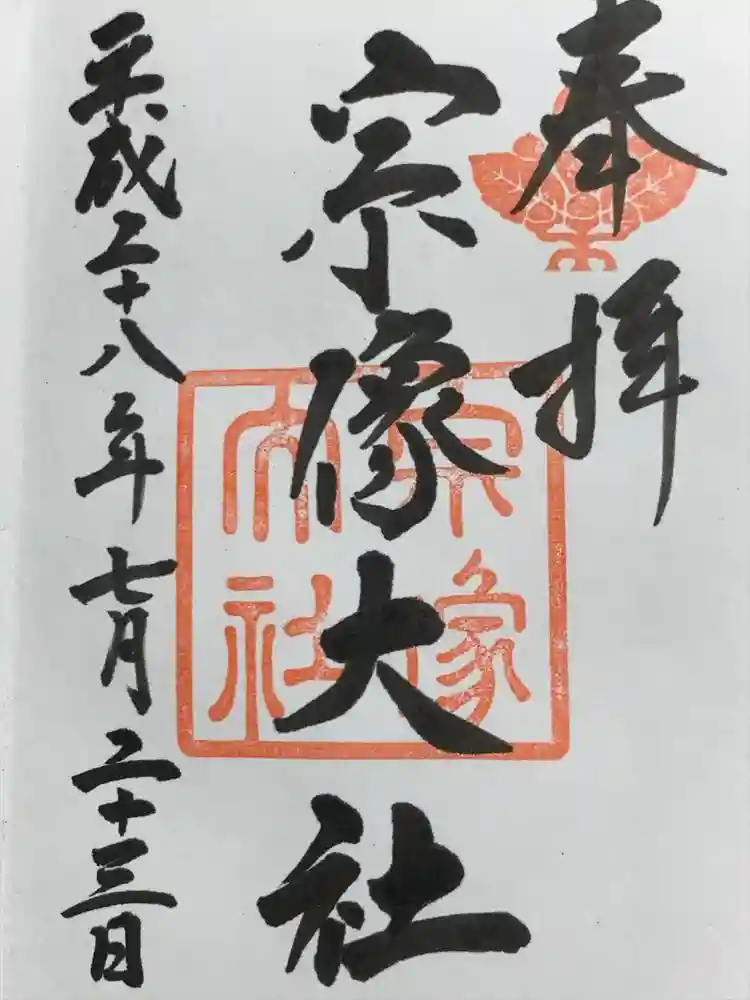 奉拝
宗像大社
宗像
大社
平成二十八年七月二十三日